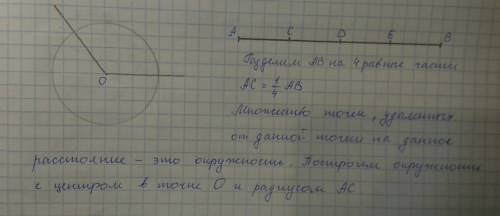 A C D E B
O
Разделим AB на 4 равные части
AC = 1/4 AB
Множество точек, удаленных
от данной точки на данное
расстояние – это окружность. Построим окружность
с центром в точке O и радиусом AC.